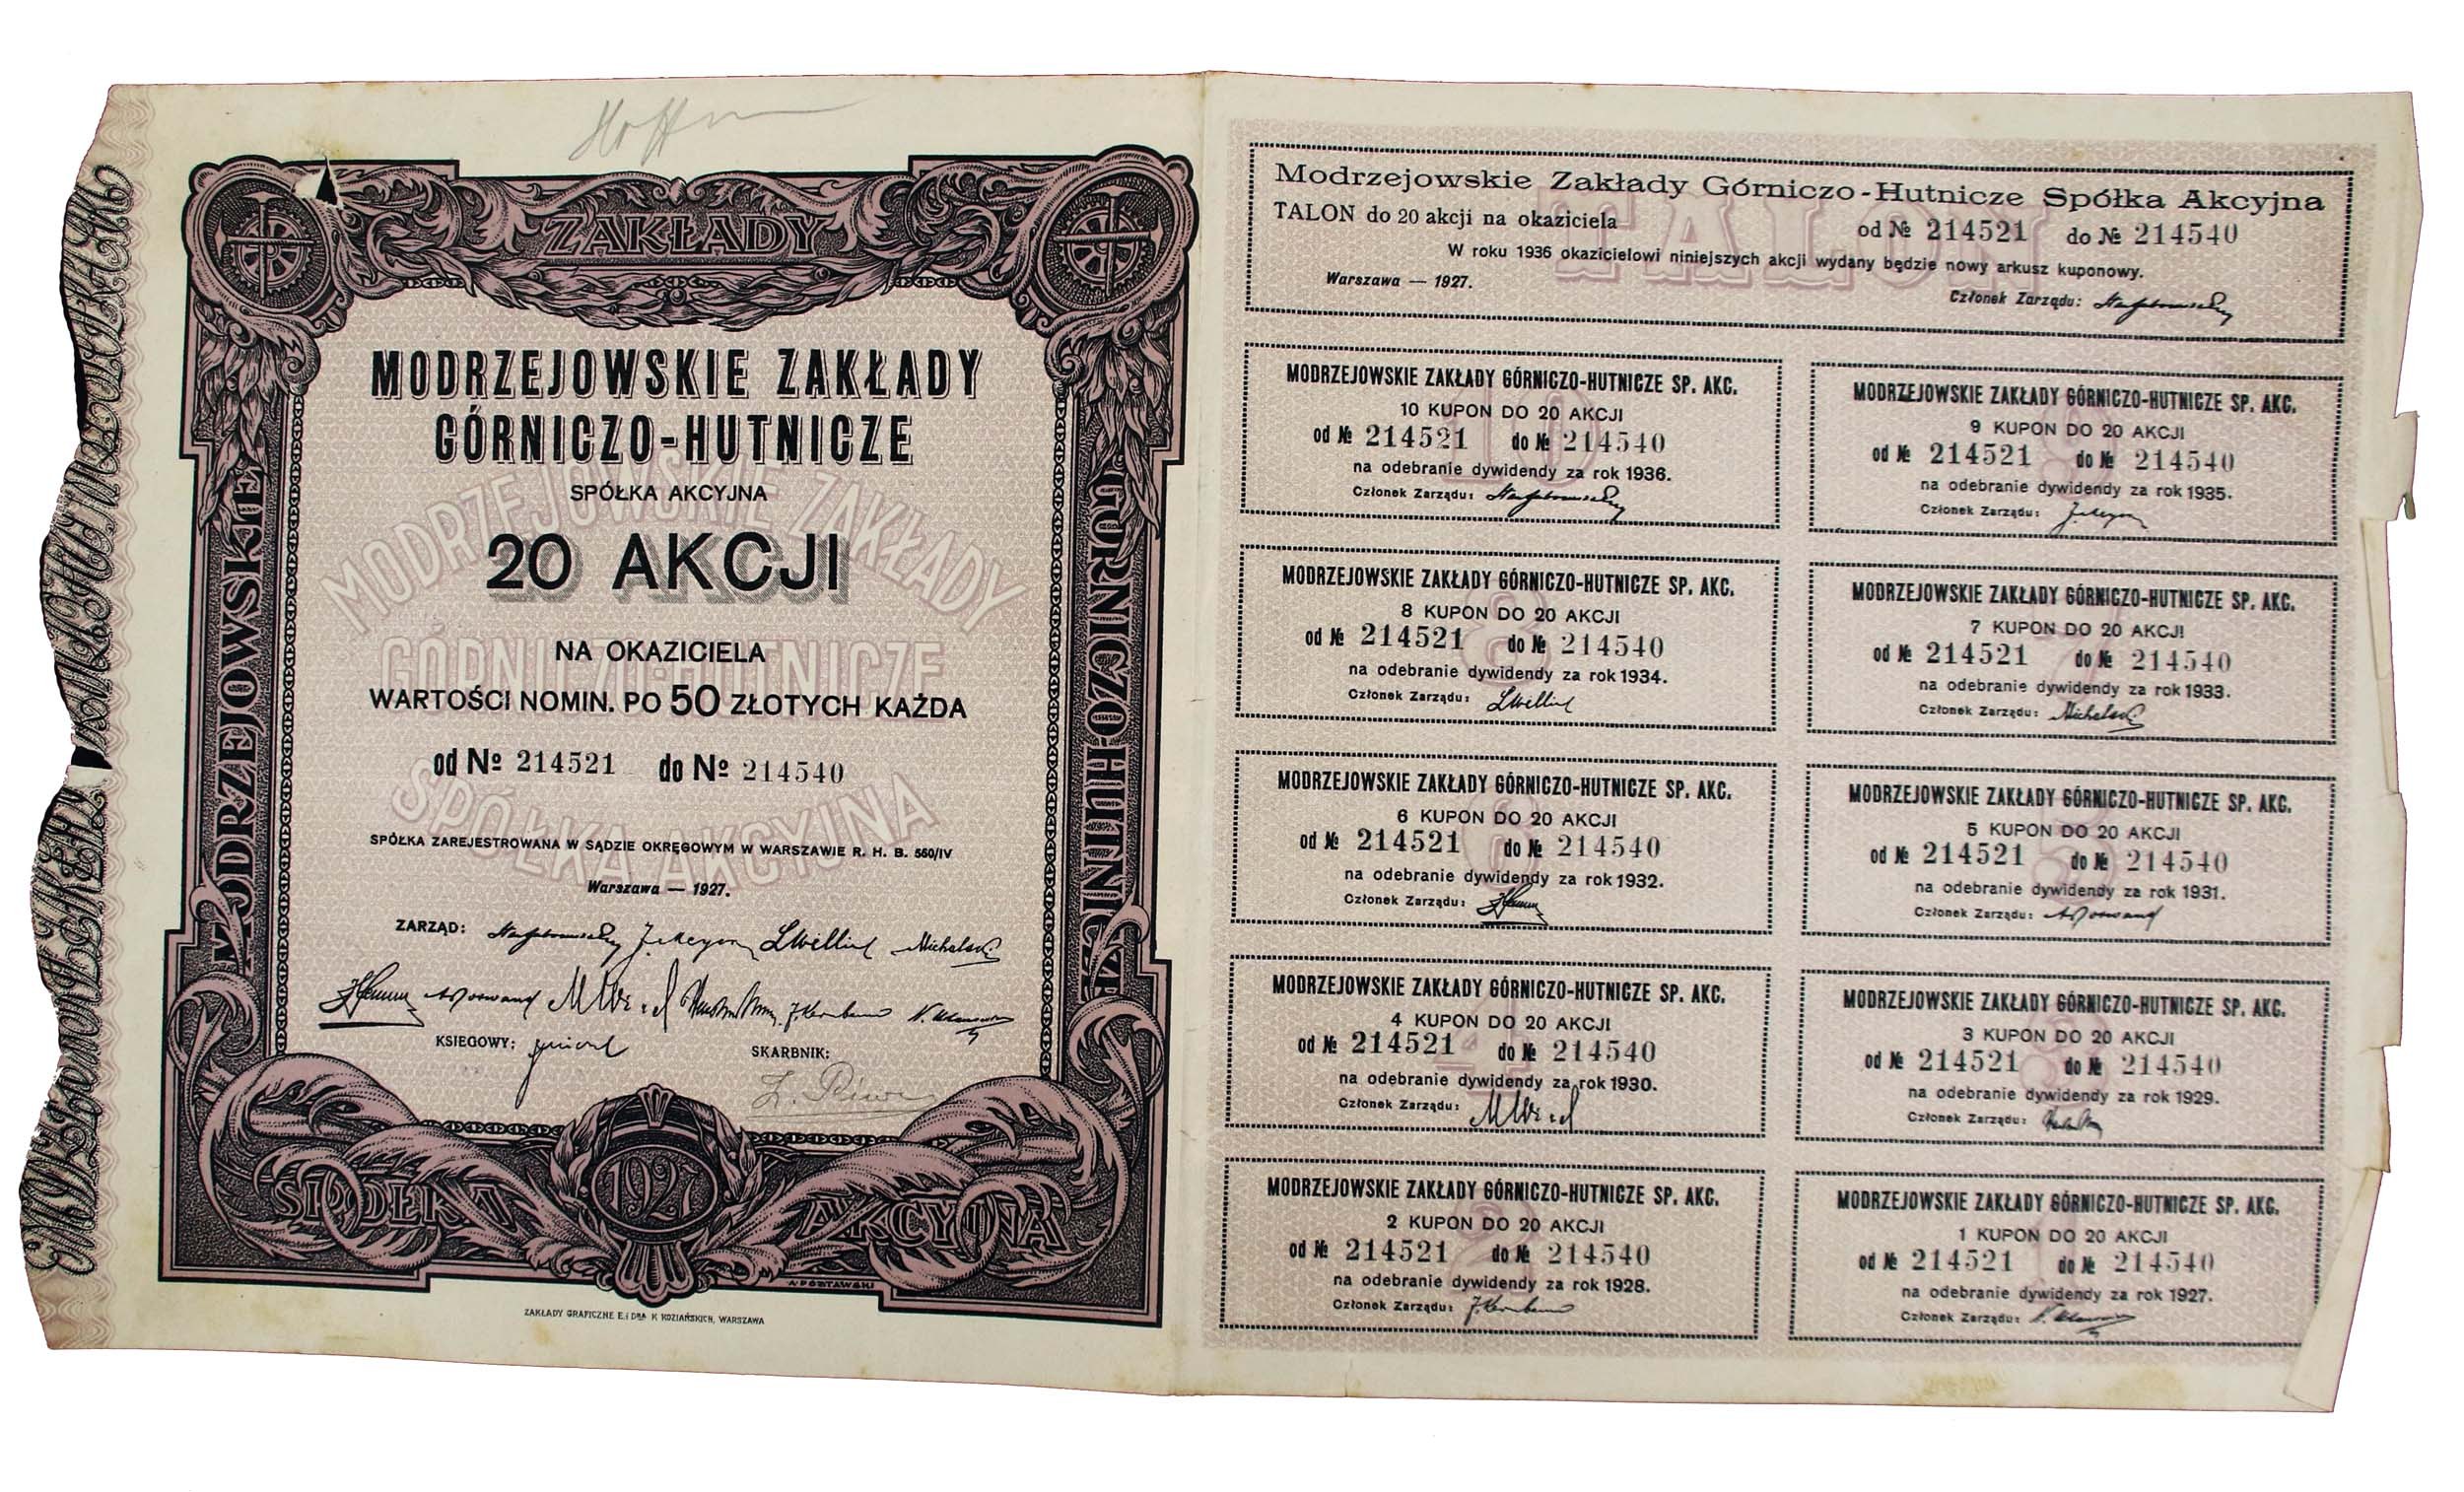 ZAKŁADY
MODRZEJOWSKIE
GÓRNICZO-HUTNICZE
MODRZEJOWSKIE ZAKŁADY
GÓRNICZO-HUTNICZE
SPÓŁKA AKCYJNA
20 AKCJI
NA OKAZICIELA
WARTOŚCI NOMIN. PO 50 ZŁOTYCH KAŻDA
od № 214521 do № 214540
SPÓŁKA ZAREJESTROWANA W SĄDZIE OKRĘGOWYM W WARSZAWIE R. H. B. 560/IV
Warszawa — 1927.
ZARZĄD:
KSIEGOWY:
SKARBNIK:
MODRZEJOWSKIE ZAKŁADY
GÓRNICZO-HUTNICZE
SPÓŁKA AKCYJNA
SPÓŁKA 1927 AKCYJNA
ZAKŁADY GRAFICZNE E. i DRA K KOZIAŃSKICH, WARSZAWA
TALON
Modrzejowskie Zakłady Górniczo-Hutnicze Spółka Akcyjna
TALON do 20 akcji na okaziciela od № 214521 do № 214540
W roku 1936 okazicielowi niniejszych akcji wydany będzie nowy arkusz kuponowy.
Warszawa — 1927.
Członek Zarządu:
MODRZEJOWSKIE ZAKŁADY GÓRNICZO-HUTNICZE SP. AKC.
10 KUPON DO 20 AKCJI
od № 214521 do № 214540
na odebranie dywidendy za rok 1936.
Członek Zarządu:
MODRZEJOWSKIE ZAKŁADY GÓRNICZO-HUTNICZE SP. AKC.
9 KUPON DO 20 AKCJI
od № 214521 do № 214540
na odebranie dywidendy za rok 1935.
Członek Zarządu:
MODRZEJOWSKIE ZAKŁADY GÓRNICZO-HUTNICZE SP. AKC.
8 KUPON DO 20 AKCJI
od № 214521 do № 214540
na odebranie dywidendy za rok 1934.
Członek Zarządu:
MODRZEJOWSKIE ZAKŁADY GÓRNICZO-HUTNICZE SP. AKC.
7 KUPON DO 20 AKCJI
od № 214521 do № 214540
na odebranie dywidendy za rok 1933.
Członek Zarządu:
MODRZEJOWSKIE ZAKŁADY GÓRNICZO-HUTNICZE SP. AKC.
6 KUPON DO 20 AKCJI
od № 214521 do № 214540
na odebranie dywidendy za rok 1932.
Członek Zarządu:
MODRZEJOWSKIE ZAKŁADY GÓRNICZO-HUTNICZE SP. AKC.
5 KUPON DO 20 AKCJI
od № 214521 do № 214540
na odebranie dywidendy za rok 1931.
Członek Zarządu:
MODRZEJOWSKIE ZAKŁADY GÓRNICZO-HUTNICZE SP. AKC.
4 KUPON DO 20 AKCJI
od № 214521 do № 214540
na odebranie dywidendy za rok 1930.
Członek Zarządu:
MODRZEJOWSKIE ZAKŁADY GÓRNICZO-HUTNICZE SP. AKC.
3 KUPON DO 20 AKCJI
od № 214521 do № 214540
na odebranie dywidendy za rok 1929.
Członek Zarządu:
MODRZEJOWSKIE ZAKŁADY GÓRNICZO-HUTNICZE SP. AKC.
2 KUPON DO 20 AKCJI
od № 214521 do № 214540
na odebranie dywidendy za rok 1928.
Członek Zarządu:
MODRZEJOWSKIE ZAKŁADY GÓRNICZO-HUTNICZE SP. AKC.
1 KUPON DO 20 AKCJI
od № 214521 do № 214540
na odebranie dywidendy za rok 1927.
Członek Zarządu: